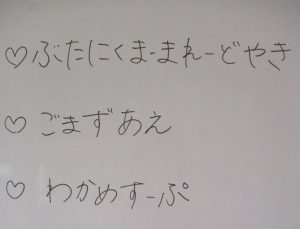 ♡ ぶたにくまーまれーどやき
♡ ごまずあえ
♡ わかめすーぷ